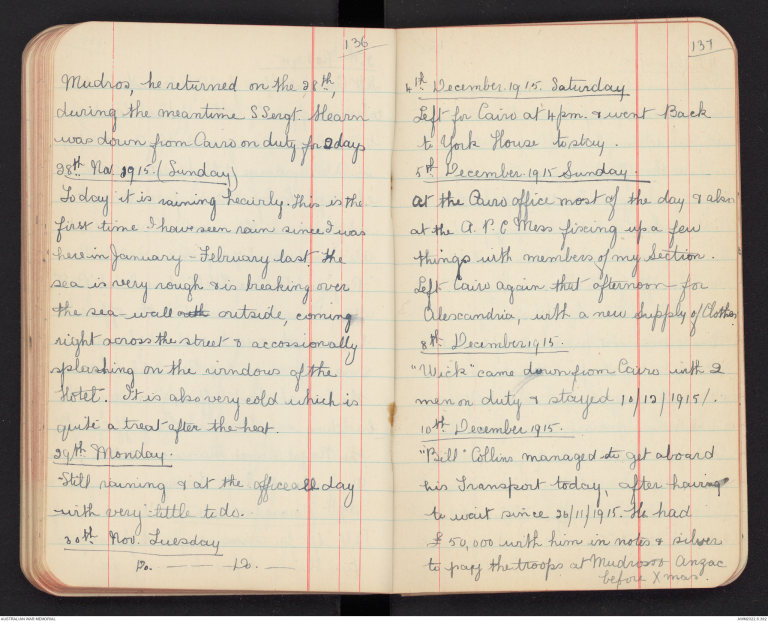 136
Mudros, he returned on the 28th,
during the meantime S Sergt. Hearn
was down from Cairo on duty for 2 days
28th Nov. 1915. (Sunday)
Today it is raining heavily. This is the
first time I have seen rain since I was
here in January - February last. The
sea is very rough & is breaking over
the sea-wall outside, coming
right across the street & accossionally
splashing on the windows of the
Hotel. It is also very cold which is
quite a treat after the heat.
29th Monday.
Still raining & at the office all day
with very little to do.
30th Nov. Tuesday
Do. ——— Do. —
137
4th December 1915. Saturday
Left for Cairo at 4 pm. & went Back
to York House to stay.
5th December 1915 Sunday.
At the Cairo office most of the day & also
at the A.P.C Mess fixing up a few
things with members of my Section.
Left Cairo again that afternoon for
Alexcandria, with a new supply of Clothes.
8th December 1915.
"Wick" came down from Cairo with 2
men on duty & stayed 10/12/1915/.
10th December 1915.
"Bill" Collins managed to get aboard
his Transport today, after having
to wait since 26/11/1915. He had
£50,000 with him in notes & silver
to pay the troops at Mudros or Anzac
before Xmas.
AUSTRALIAN WAR MEMORIAL